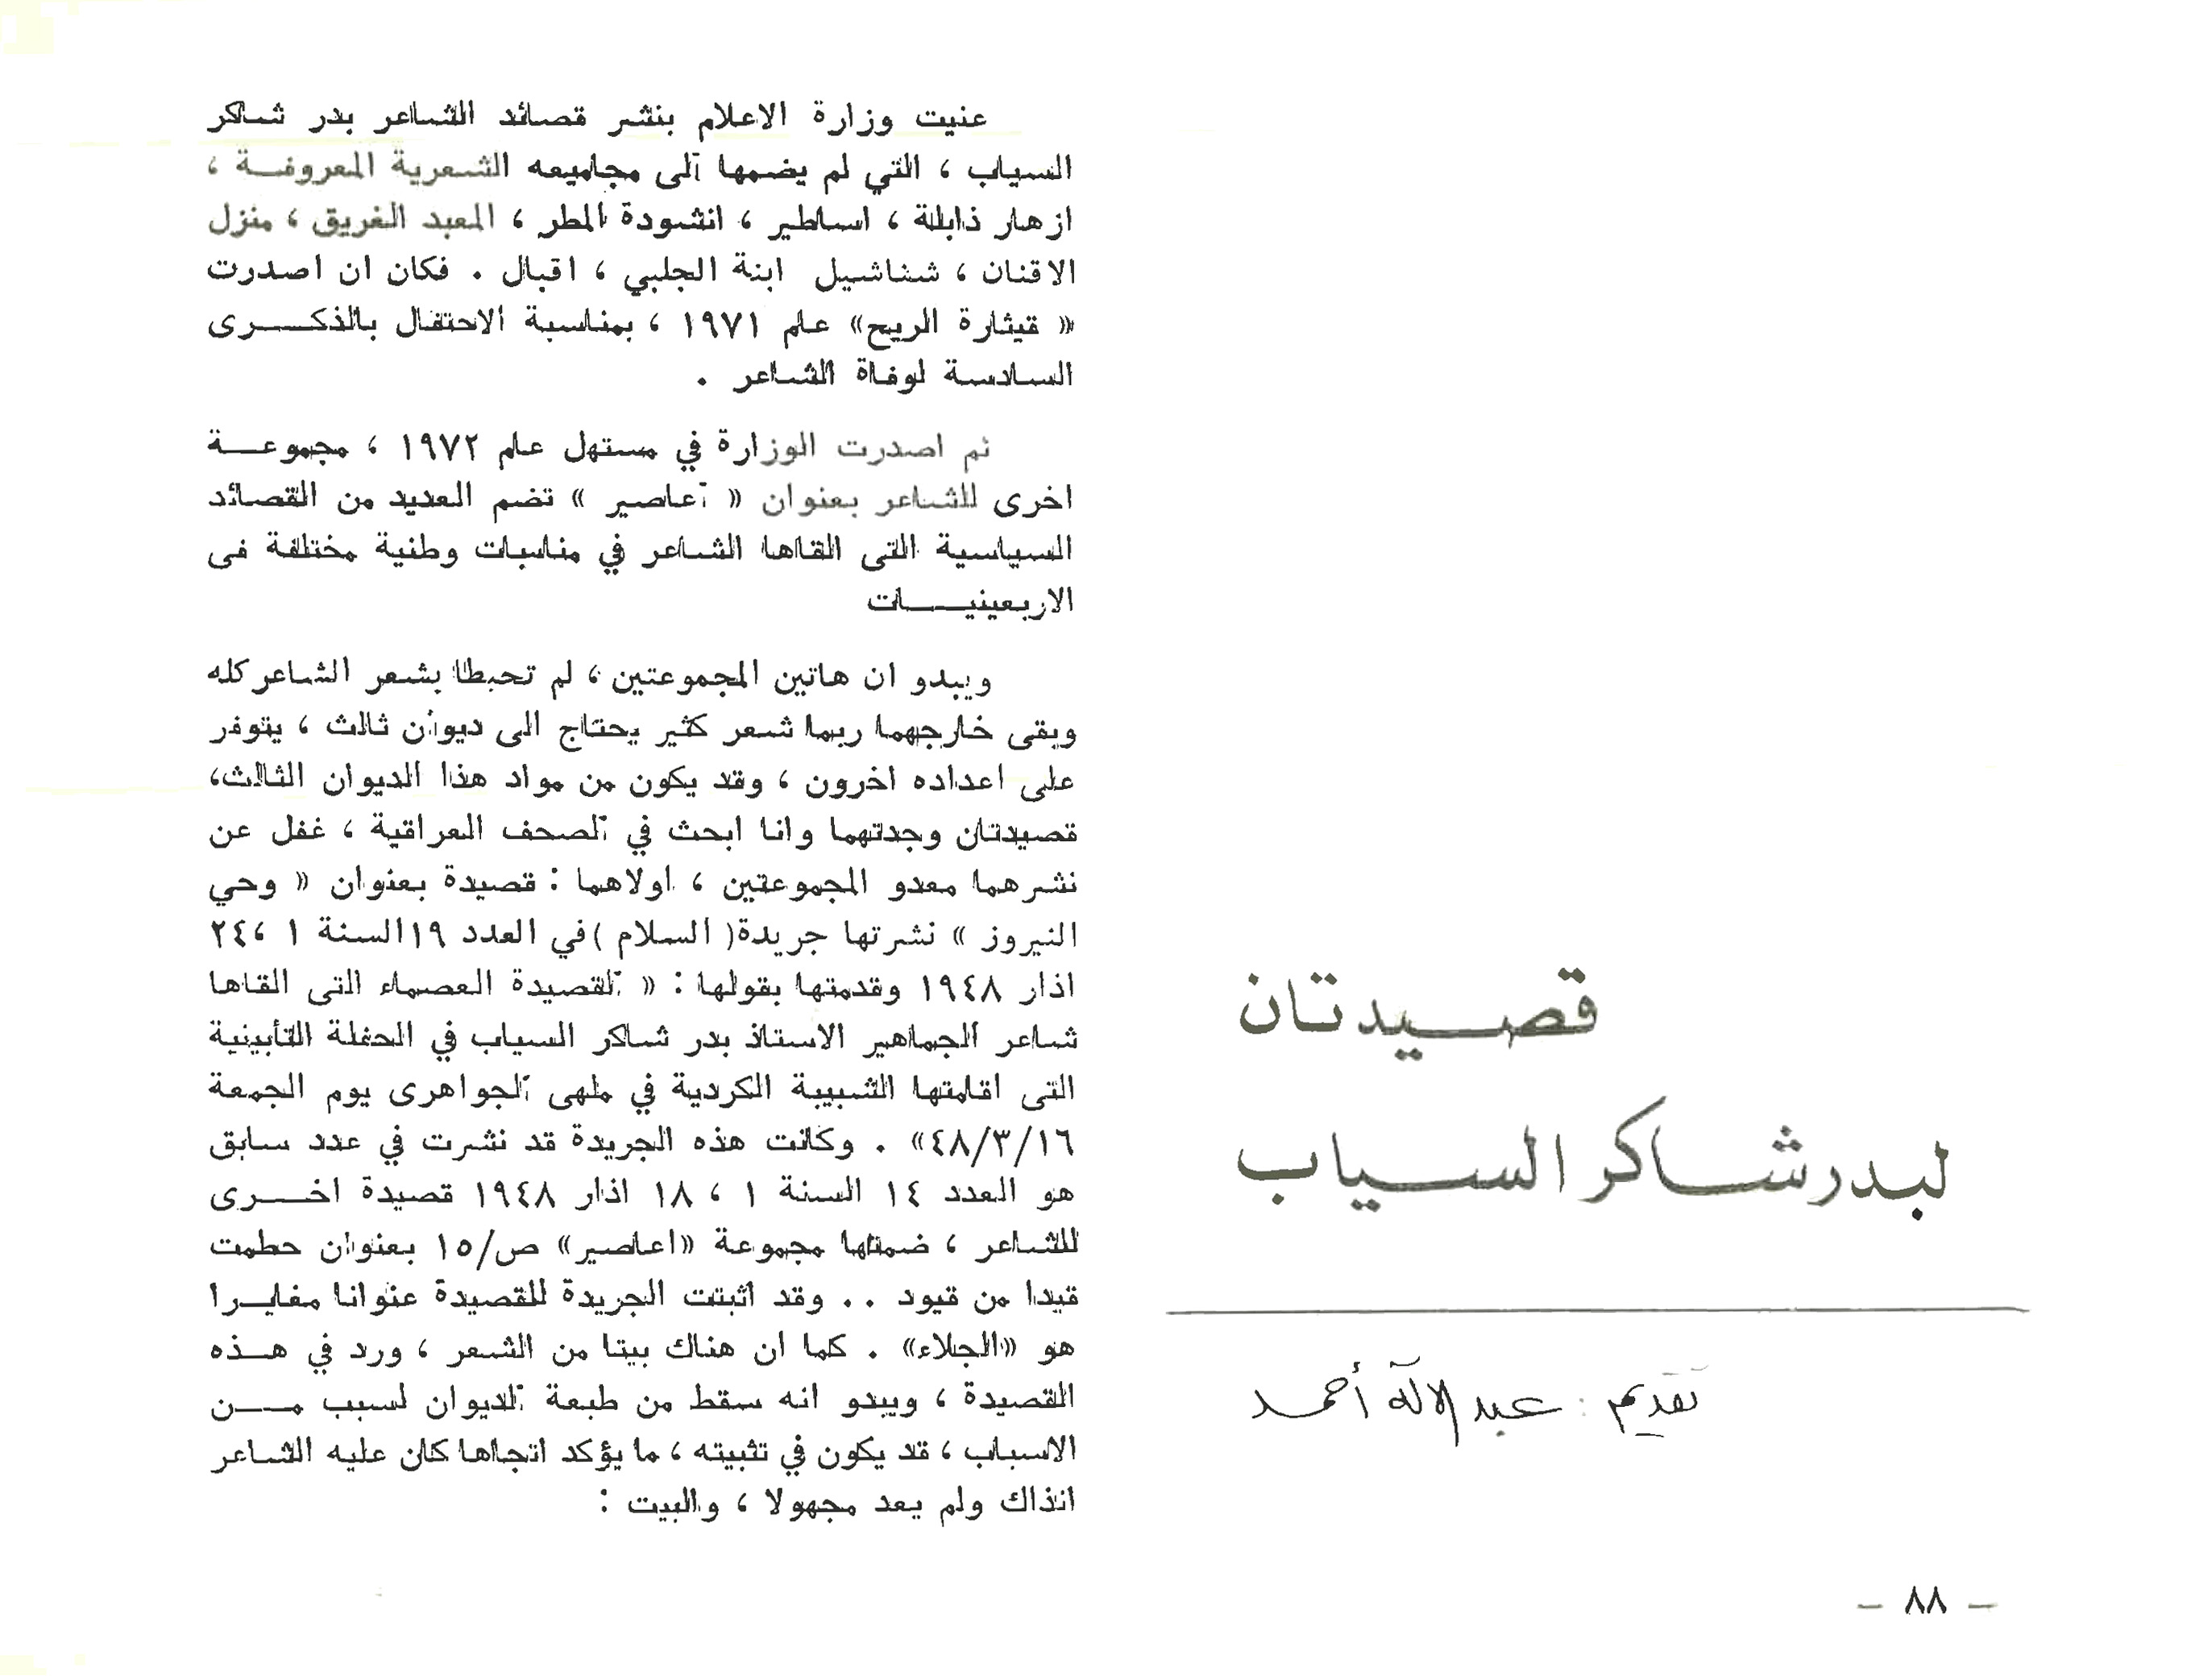 قصيدتان
لبدر شاكر السياب
تقديم : عبد الاله أحمد
عنيت وزارة الاعلام بنشر قصائد الشاعر بدر شاكر
السياب ، التي لم يضمها الى مجاميعه الشعرية المعروفة ،
ازهار ذابلة ، اساطير ، انشودة المطر ، المعبد الغريق ، منزل
الاقنان ، شناشيل ابنة الجلبي ، اقبال . فكان ان اصدرت
« قيثارة الريح» عام ١٩٧١ ، بمناسبة الاحتفال بالذكرى
السادسة لوفاة الشاعر .
ثم اصدرت الوزارة في مستهل عام ١٩٧٢ ، مجموعة
اخرى للشاعر بعنوان « أعاصير » تضم العديد من القصائد
السياسية التى القاها الشاعر في مناسبات وطنية مختلفة فى
الاربعينيات
ويبدو ان هاتين المجموعتين ، لم تحيطا بشعر الشاعر كله
وبقى خارجهما ربما شعر كثير يحتاج الى ديوان ثالث ، يتوفر
على اعداده اخرون ، وقد يكون من مواد هذا الديوان الثالث،
قصيدتان وجدتهما وانا ابحث في الصحف العراقية ، غفل عن
نشرهما معدو المجموعتين ، اولاهما : قصيدة بعنوان « وحي
النيروز » نشرتها جريدة( السلام )في العدد ١٩السنة ١ ،٢٤
اذار ١٩٤٨ وقدمتها بقولها : « القصيدة العصماء التى القاها
شاعر الجماهير الاستاذ بدر شاكر السياب في الحفلة التأبينية
التى اقامتها الشبيبة الكردية في ملهى الجواهرى يوم الجمعة
٤٨/٣/١٦» . وكانت هذه الجريدة قد نشرت في عدد سابق
هو العدد ١٤ السنة ١ ، ١٨ اذار ١٩٤٨ قصيدة اخرى
للشاعر ، ضمتها مجموعة «اعاصير» ص/١٥ بعنوان حطمت
قيدا من قيود .. وقد اثبتت الجريدة للقصيدة عنوانا مغايرا
هو «الجلاء» . كما ان هناك بيتا من الشعر ، ورد في هذه
القصيدة ، ويبدو انه سقط من طبعة الديوان لسبب من
الاسباب ، قد يكون في تثبيته ، ما يؤكد اتجاها كان عليه الشاعر
انذاك ولم يعد مجهولا ، والبيت :
- ٨٨ -